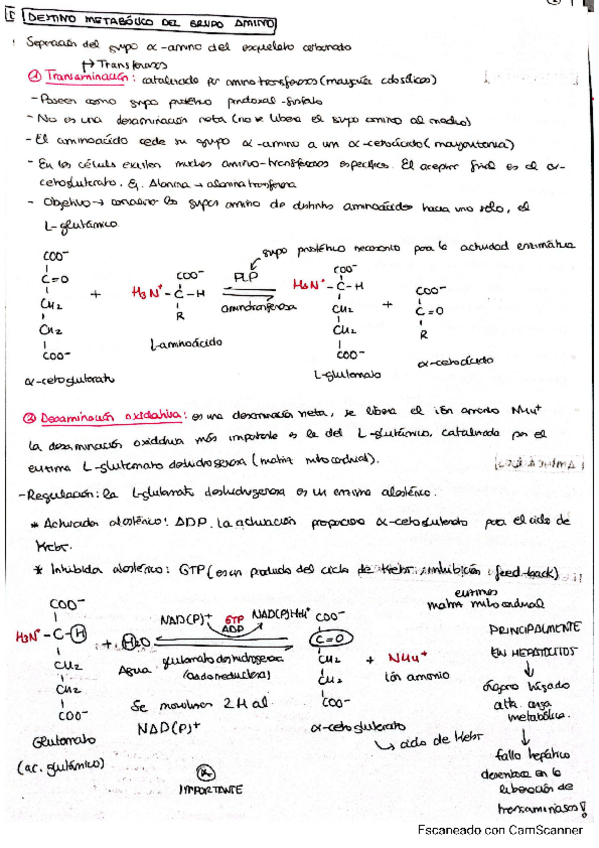 DESTINO METABÓLICO DEL GRUPO AMINO
Separación del grupo α-amino del esqueleto carbonado
↳ Transferasas
① Transaminación: catalizada por aminotransferasas (mayoría citosólicas)
- Poseen como grupo prostético piridoxal-fosfato
- No es una desaminación neta (no se libera el grupo amino al medio)
- El aminoácido cede su grupo α-amino a un α-cetoácido (mayoritario)
- En las células existen muchas amino-transferasas específicas. El aceptor final es el α-
cetoglutarato. Ej. Alanina → alanina transferasa
- Objetivo → concentrar los grupos amino de distintos aminoácidos hacia uno solo, el
L-glutámico.
grupo prostético necesario para la actividad enzimática
COO⁻
C=O
CH₂
CH₂
COO⁻
+
COO⁻
H₃N⁺-C-H
R
PLP
aminotransferasa
COO⁻
H₃N⁺-C-H
CH₂
CH₂
COO⁻
+
COO⁻
C=O
R
α-cetoglutarato
L-aminoácido
L-glutamato
α-cetoácido
② Desaminación oxidativa: es una desaminación neta, se libera el ión amonio NH₄⁺
la desaminación oxidativa más importante es la del L-glutámico, catalizada por el
enzima L-glutamato deshidrogenasa (matriz mitocondrial).
- Regulación: la L-glutamato deshidrogenasa es un enzima alostérico.
* Activador alostérico: ADP. La activación proporciona α-cetoglutarato para el ciclo de
Krebs.
* Inhibidor alostérico: GTP (es un producto del ciclo de Krebs, inhibición feed-back)
enzimas
matriz mitocondrial
COO⁻
H₃N⁺-C-H
CH₂
CH₂
COO⁻
+ H₂O
Agua
NAD(P)⁺
GTP
ADP
NAD(P)H+H⁺
glutamato deshidrogenasa
(oxidoreductasa)
Se movilizan 2H al
NAD(P)⁺
COO⁻
C=O
CH₂
CH₂
COO⁻
+ NH₄⁺
Ión amonio
Glutamato
(ac. glutámico)
α-cetoglutarato
↳ ciclo de Krebs
IMPORTANTE
PRINCIPALMENTE
EN HEPATOCITOS
↓
órgano hígado
alta carga
metabólica.
↓
fallo hepático
desemboca en la
liberación de
transaminasas!
Escaneado con CamScanner